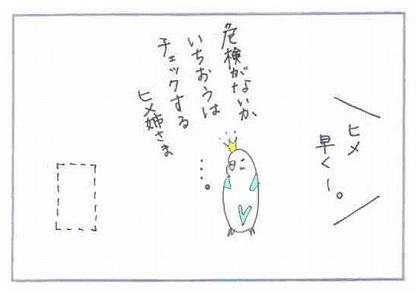 ヒメ
早く〜。
危検がないか、
いちおうは
チェックする
ヒメ姉さま
…。